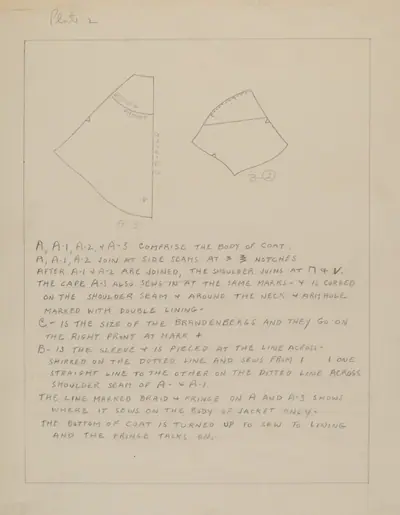 Plate 2
BRAID &
FRINGE
A-3
B-②
A, A-1, A-2, & A-3 COMPRISE THE BODY OF COAT.
A, A-1, A-2 JOIN AT SIDE SEAMS AT NOTCHES
AFTER A-1 & A-2 ARE JOINED, THE SHOULDER JOINS AT ⊓ & V.
THE CAPE A-3 ALSO SEWS IN AT THE SAME MARKS- & IS CURVED
ON THE SHOULDER SEAM & AROUND THE NECK & ARM HOLE
MARKED WITH DOUBLE LINING-
C- IS THE SIZE OF THE BRANDENBERGS AND THEY GO ON
THE RIGHT FRONT AT MARK +
B- IS THE SLEEVE & IS PIECED AT THE LINE ACROSS-
SHIRRED ON THE DOTTED LINE AND SEWS FROM 1 1 ONE
STRAIGHT LINE TO THE OTHER ON THE DOTTED LINE ACROSS
SHOULDER SEAM OF A- & A-1.
THE LINE MARKED BRAID & FRINGE ON A AND A-3 SHOWS
WHERE IT SEWS ON THE BODY OF JACKET ONLY-
THE BOTTOM OF COAT IS TURNED UP TO SEW TO LINING
AND THE FRINGE TACKS ON.